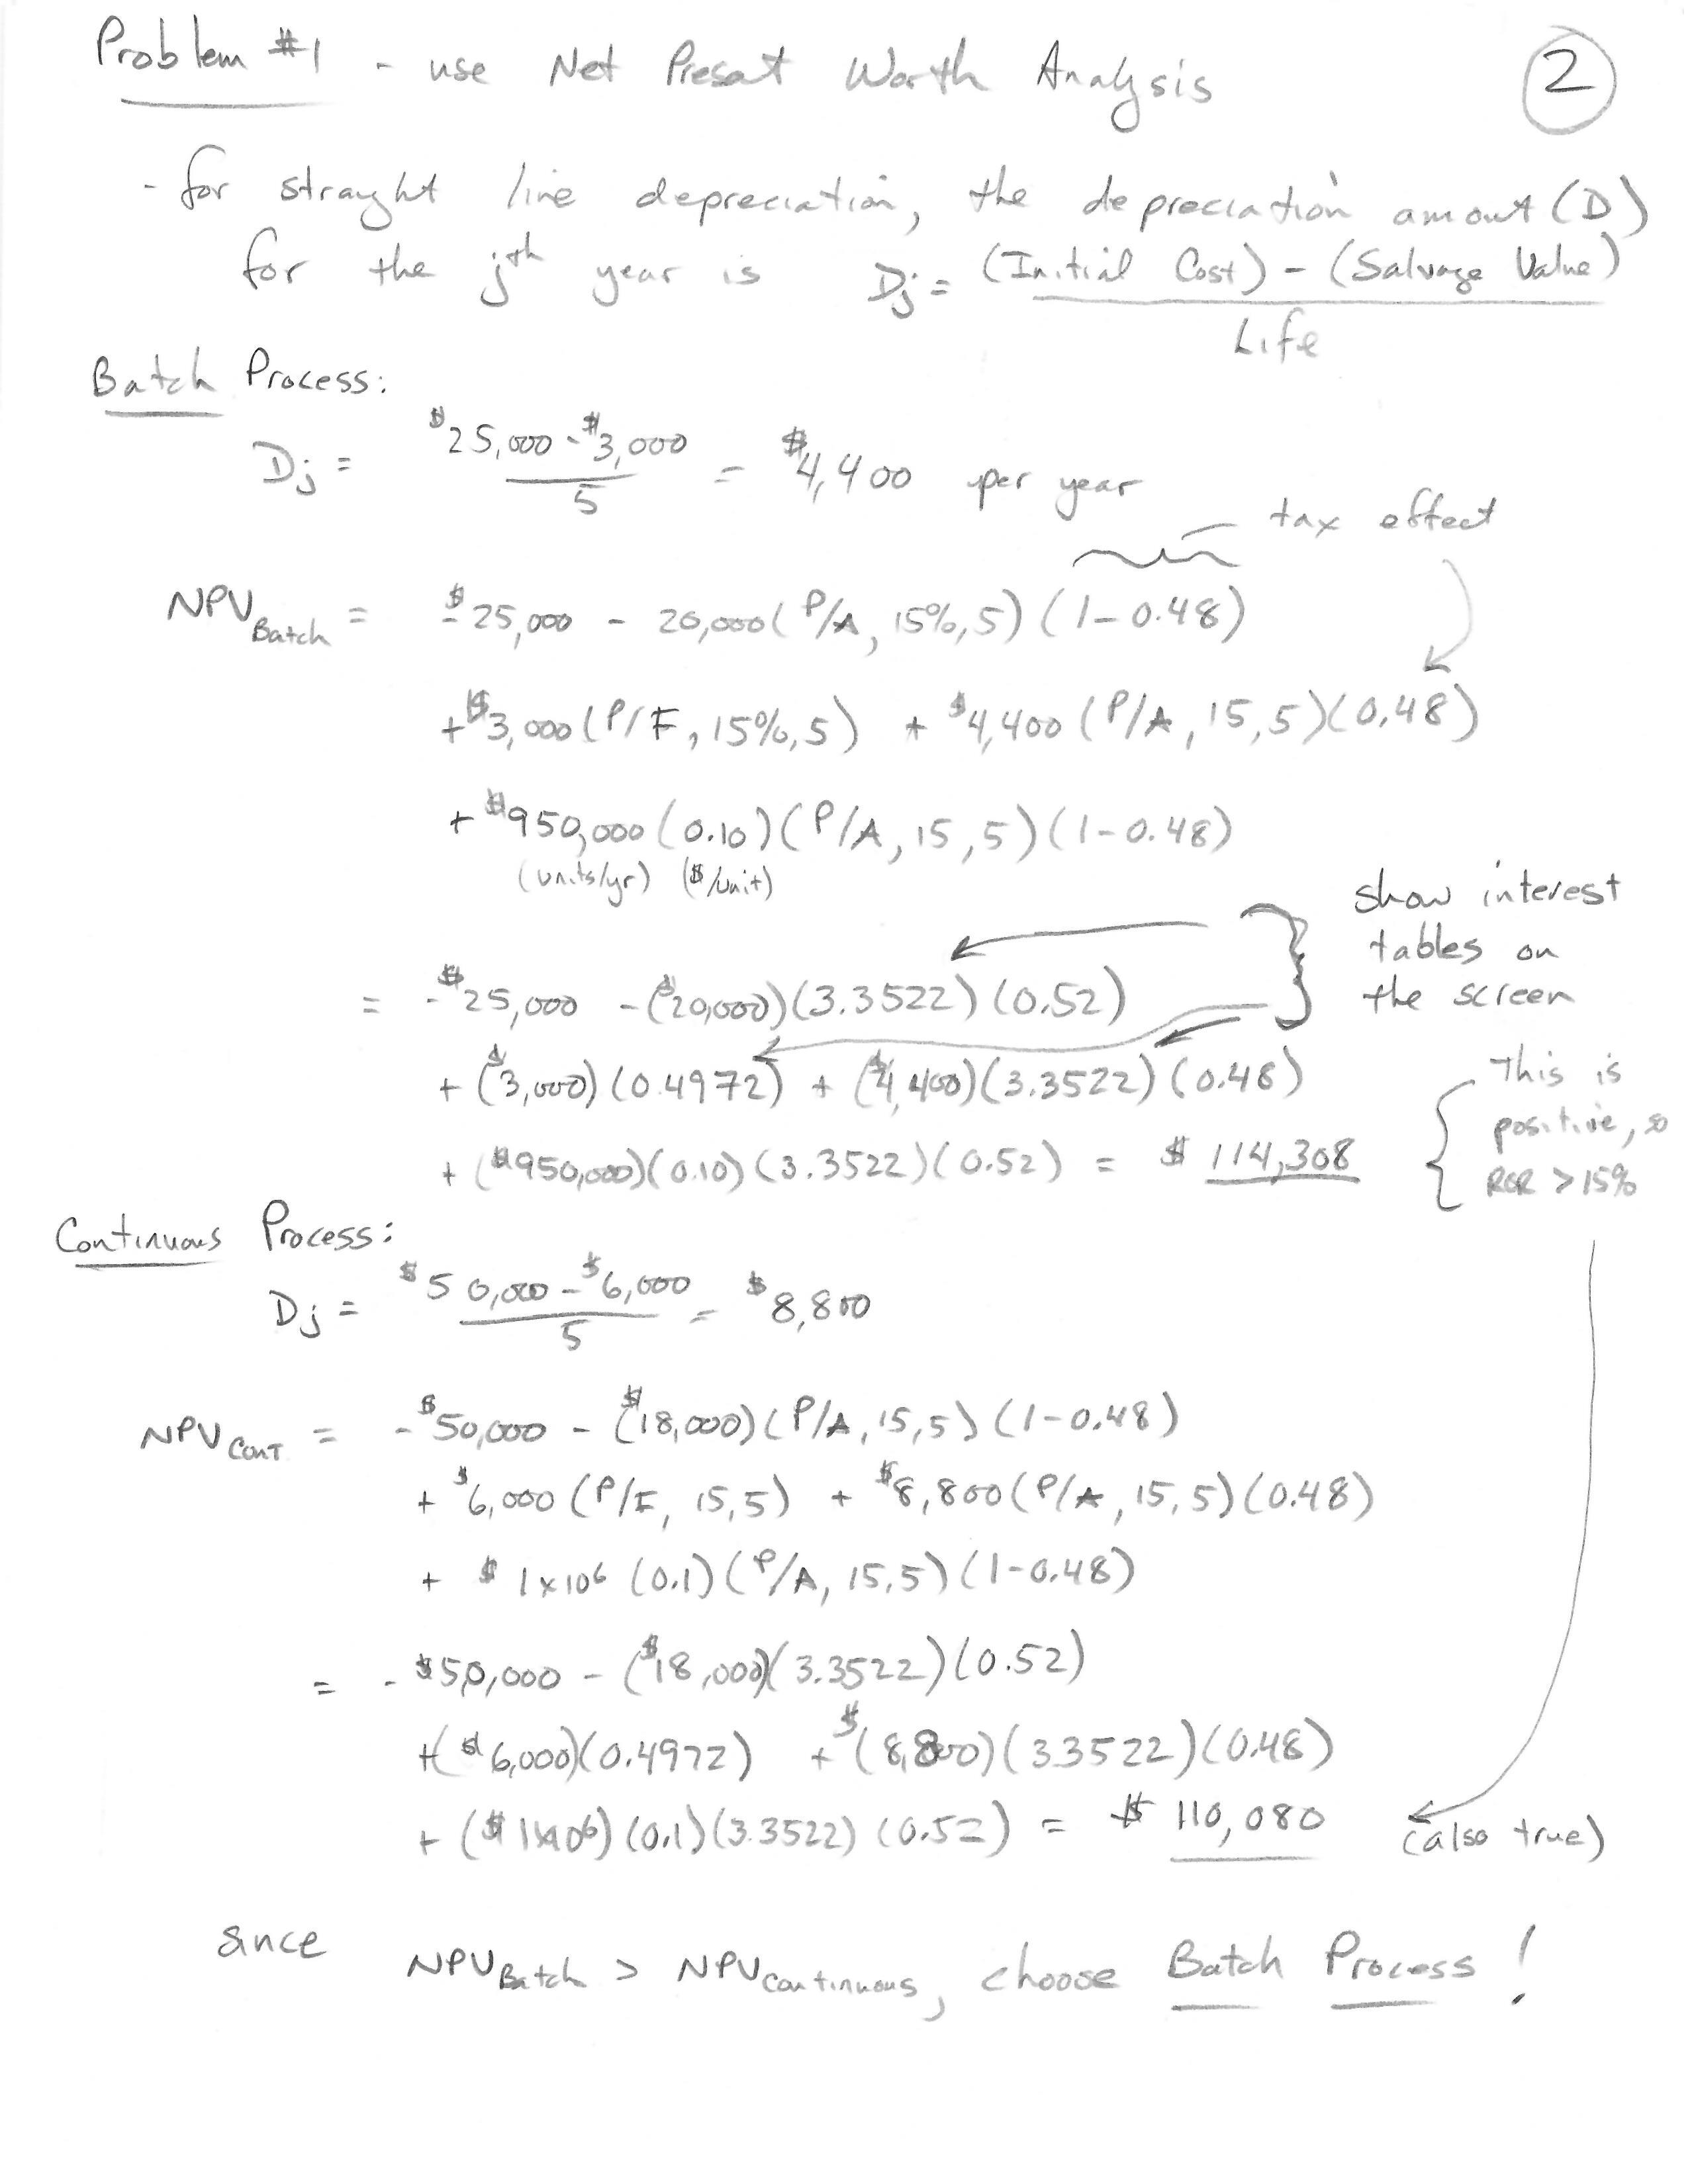 Problem #1 - use Net Present Worth Analysis
2
- for straight line depreciation, the depreciation amount (D)
for the jth year is Dj = (Initial Cost) - (Salvage Value)
Life
Batch Process:
Dj = $25,000 - $3,000 = $4,400 per year
5
tax effect
NPV Batch = -$25,000 - 20,000 (P/A, 15%, 5) (1-0.48)
+ $3,000 (P/F, 15%, 5) + $4,400 (P/A, 15, 5) (0.48)
+ $950,000 (0.10) (P/A, 15, 5) (1-0.48)
(units/yr) ($/unit)
show interest
tables on
the screen
= -$25,000 - ($20,000) (3.3522) (0.52)
+ ($3,000) (0.4972) + ($4,400) (3.3522) (0.48)
+ ($950,000) (0.10) (3.3522) (0.52) = $114,308
This is
positive, so
ROR > 15%
Continuous Process:
Dj = $50,000 - $6,000 = $8,800
5
NPV Cont = -$50,000 - ($18,000) (P/A, 15, 5) (1-0.48)
+ $6,000 (P/F, 15, 5) + $8,800 (P/A, 15, 5) (0.48)
+ $1x106 (0.1) (P/A, 15, 5) (1-0.48)
= -$50,000 - ($18,000) (3.3522) (0.52)
+ ($6,000) (0.4972) + $(8,800) (3.3522) (0.48)
+ ($1x106) (0.1) (3.3522) (0.52) = $110,080
(also true)
since NPV Batch > NPV Continuous, choose Batch Process!